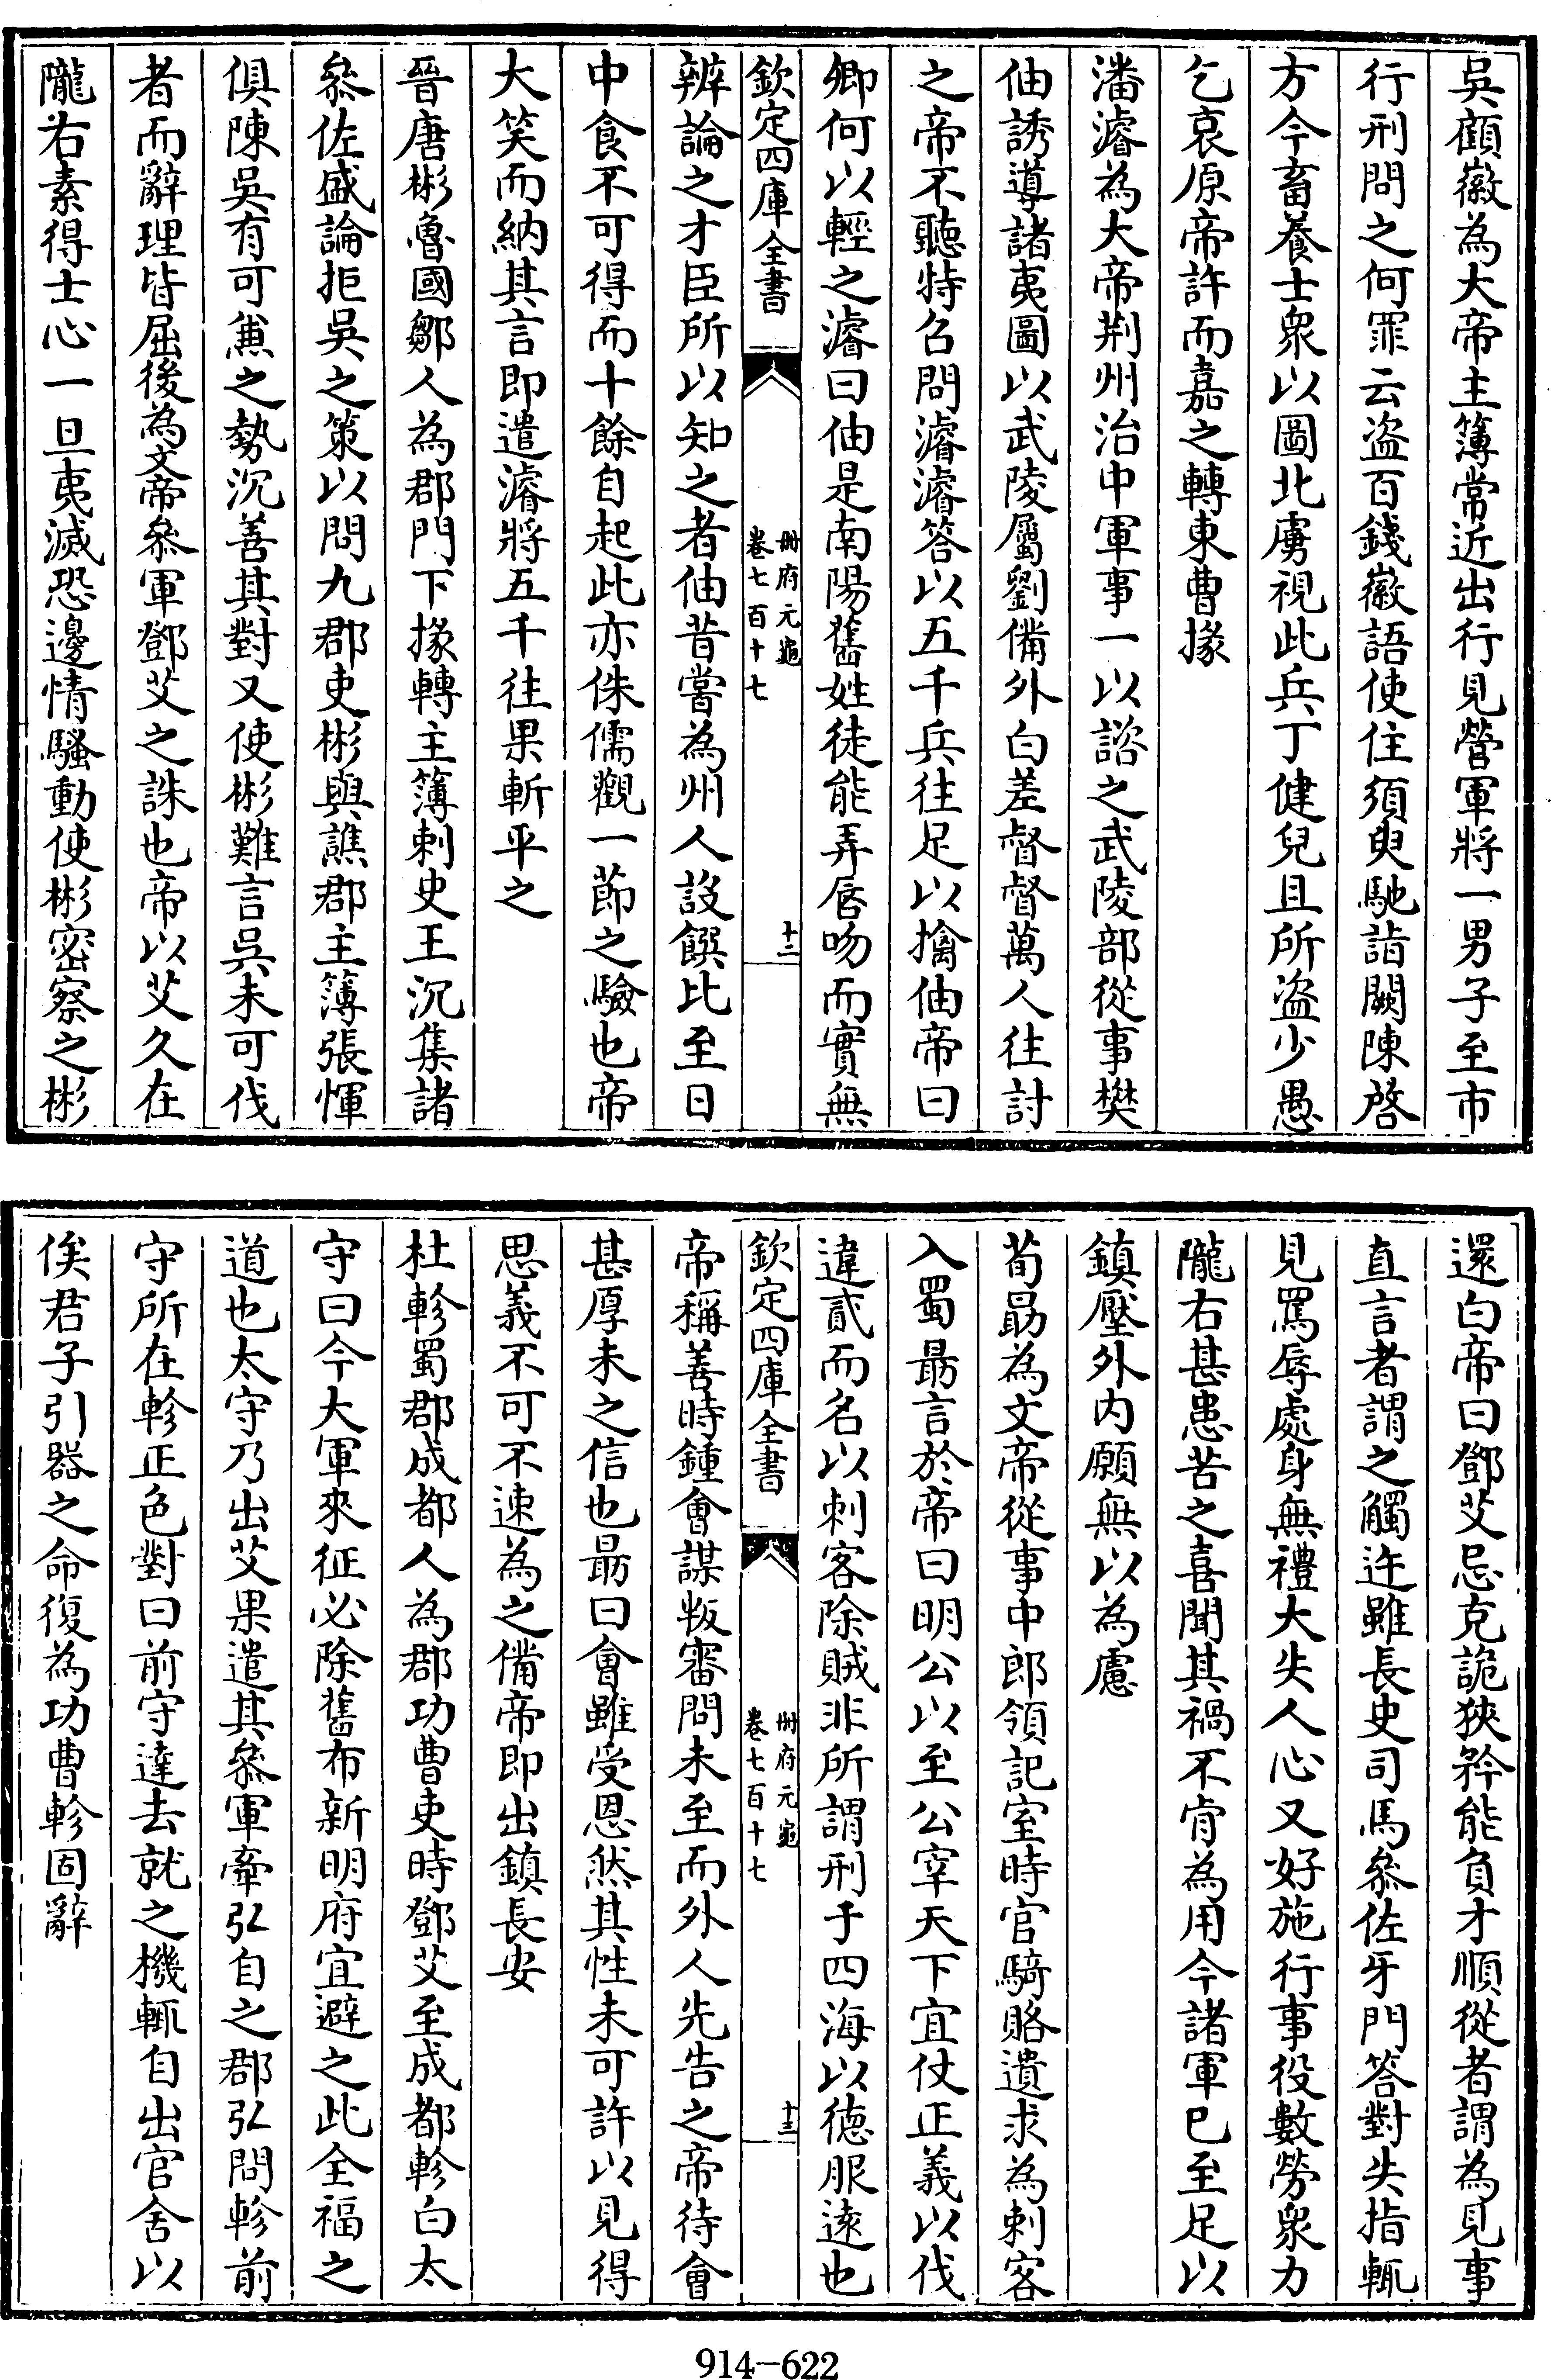 吳顧徽為大帝主簿常近出行見營軍將一男子至市
行刑問之何罪云盗百錢徽語使住須臾馳詣闕陳啓
方今畜養士衆以圖北虜視此兵丁健兒且所盗少愚
乞哀原帝許而嘉之轉東曹掾
潘濬為大帝荆州治中軍事一以諮之武陵部從事樊
伷誘導諸夷圖以武陵屬劉備外白差督督萬人往討
之帝不聽特召問濬濬答以五千兵往足以擒伷帝曰
卿何以輕之濬曰伷是南陽舊姓徒能弄唇吻而實無
欽定四庫全書
冊府元龜
卷七百十七
十二
辨論之才臣所以知之者伷昔嘗為州人設饌比至日
中食不可得而十餘自起此亦侏儒觀一節之驗也帝
大笑而納其言即遣濬將五千往果斬平之
晉唐彬魯國鄒人為郡門下掾轉主簿刺史王沉集諸
叅佐盛論拒吳之策以問九郡吏彬與譙郡主簿張惲
俱陳吳有可兼之勢沉善其對又使彬難言吳未可伐
者而辭理皆屈後為文帝叅軍鄧艾之誅也帝以艾久在
隴右素得士心一旦夷滅恐邊情騷動使彬密察之彬
還白帝曰鄧艾忌克詭狹矜能負才順從者謂為見事
直言者謂之觸迕雖長史司馬叅佐牙門答對失指輒
見罵辱處身無禮大失人心又好施行事役數勞衆力
隴右甚患苦之喜聞其禍不肯為用今諸軍巳至足以
鎮壓外内願無以為慮
荀勗為文帝從事中郎領記室時官騎賂遺求為刺客
入蜀勗言於帝曰明公以至公宰天下宜仗正義以伐
違貳而名以刺客除賊非所謂刑于四海以德服遠也
欽定四庫全書
冊府元龜
卷七百十七
十三
帝稱善時鍾會謀叛審問未至而外人先告之帝待會
甚厚未之信也勗曰會雖受恩然其性未可許以見得
思義不可不速為之備帝即出鎮長安
杜軫蜀郡成都人為郡功曹吏時鄧艾至成都軫白太
守曰今大軍來征必除舊布新明府宜避之此全福之
道也太守乃出艾果遣其叅軍牽弘自之郡弘問軫前
守所在軫正色對曰前守達去就之機輒自出官舍以
俟君子引器之命復為功曹軫固辭
914-622